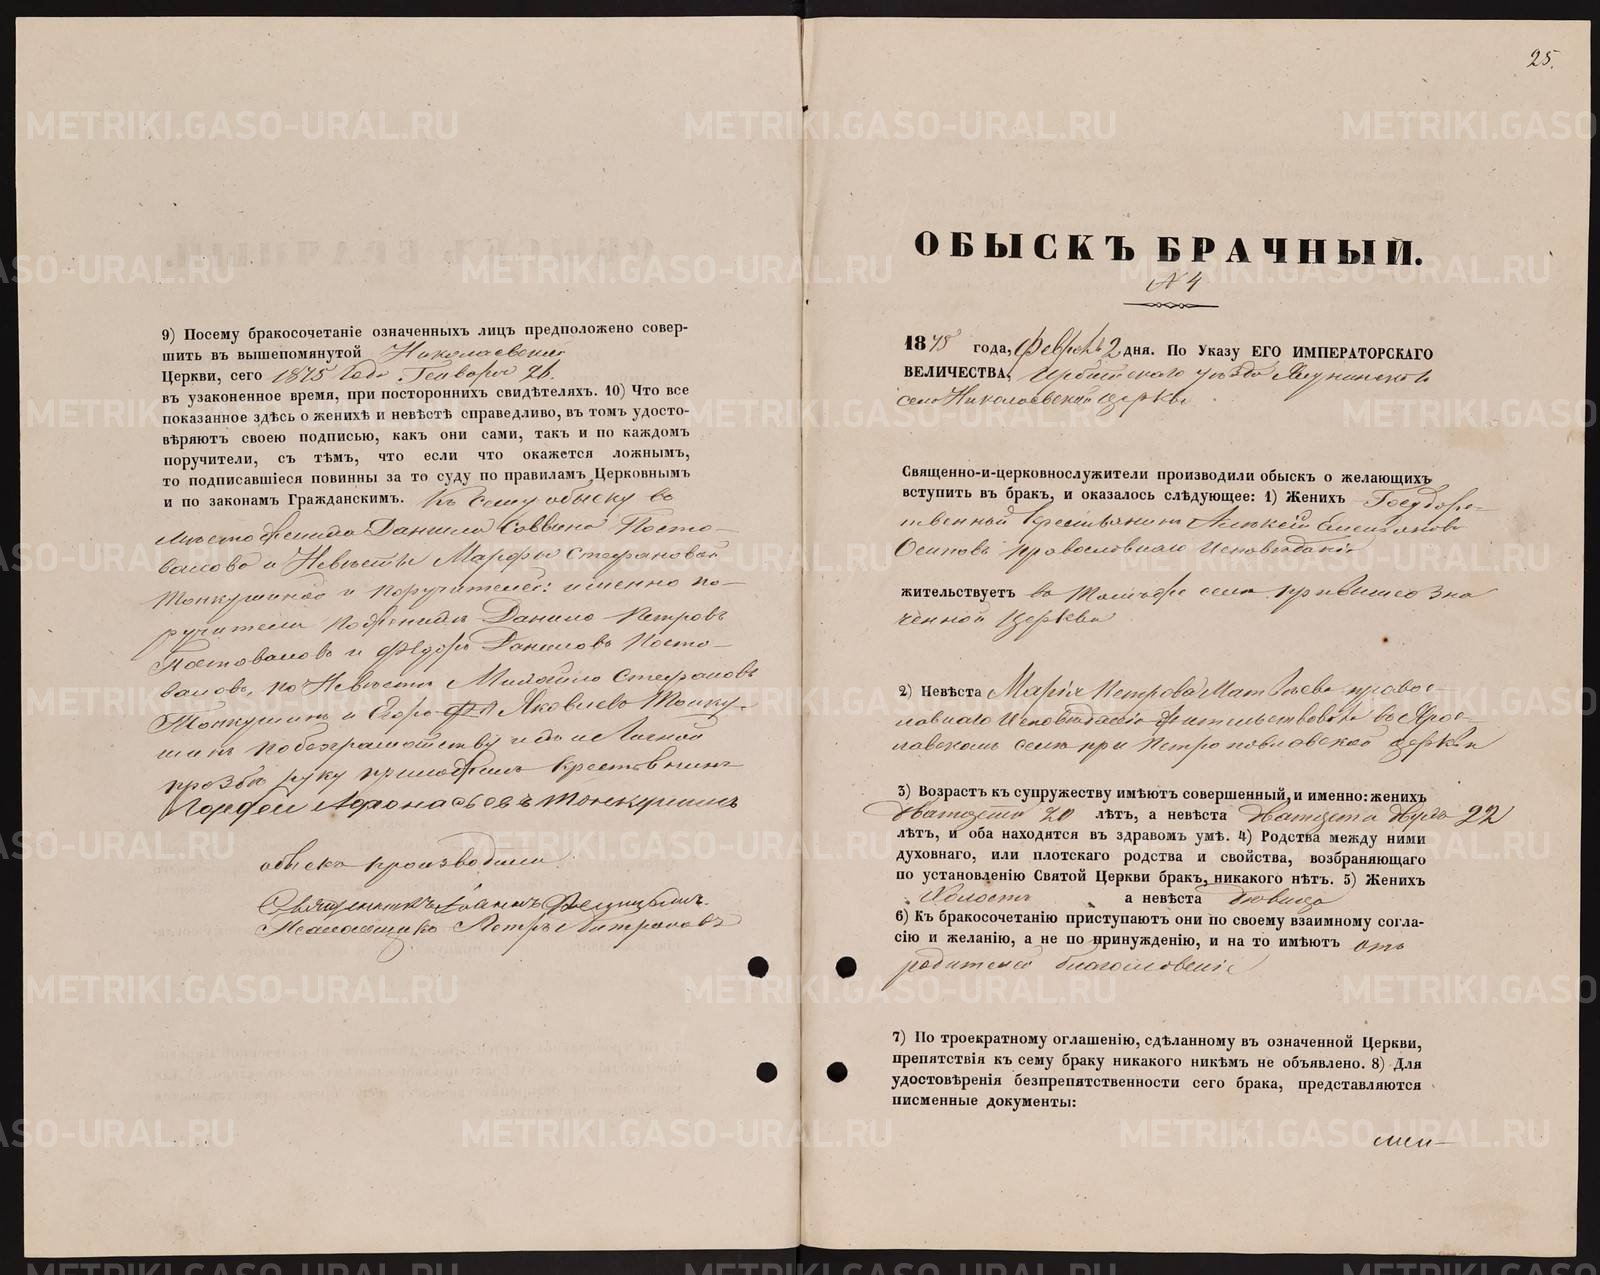 9) Посему бракосочетаніе означенныхъ лицъ предположено совер-
шить въ вышепомянутой Николаевской
Церкви, сего 1875 года Генваря 26.
въ узаконенное время, при постороннихъ свидѣтеляхъ. 10) Что все
показанное здѣсь о женихѣ и невѣстѣ справедливо, въ томъ удосто-
вѣряютъ своею подписью, какъ они сами, такъ и по каждомъ
поручители, съ тѣмъ, что если что окажется ложнымъ,
то подписавшіеся повинны за то суду по правиламъ Церковнымъ
и по законамъ Гражданскимъ. Къ сему обыску во
мѣсто жениха Данила Саввина Посто-
валова и Невѣсты Марфы Стефановой
Топкушиной и Поручителей: именно по-
ручители по женихѣ Данило Петровъ
Постоваловъ и Федоръ Даниловъ Посто-
валовъ, по Невѣстѣ Михайло Стефановъ
Топкушинъ и Яковлевъ Топку-
шинъ по безграмотству и по ихъ Личной
прозьбѣ руку приложилъ Крестьянинъ
Афонасьевъ Топкушинъ
обыскъ производили
Священникъ Іоаннъ
Псаломщикъ Петръ
25.
ОБЫСКЪ БРАЧНЫЙ.
N 4
1875 года, Февраля 2 дня. По Указу ЕГО ИМПЕРАТОРСКАГО
ВЕЛИЧЕСТВА, Ирбитскаго уѣзда
села Николаевской церкви
Священно-и-церковнослужители производили обыскъ о желающихъ
вступить въ бракъ, и оказалось слѣдующее: 1) Женихъ Государс-
твенный Крестьянинъ Алексѣй Емельяновъ
Осиповъ православнаго исповѣданія
жительствуетъ въ селѣ при вышеозна
ченной Церкви
2) Невѣста Марія Петрова Матвѣева правос-
лавнаго Исповѣданія жительствовала въ Ярос-
лавскомъ селѣ при Петропавловской церкви
3) Возрастъ къ супружеству имѣютъ совершенный, и именно: женихъ
дватцети 20 лѣтъ, а невѣста дватцети двухъ 22
лѣтъ, и оба находятся въ здравомъ умѣ. 4) Родства между ними
духовнаго, или плотскаго родства и свойства, возбраняющаго
по установленію Святой Церкви бракъ, никакого нѣтъ. 5) Женихъ
Холостъ а невѣста дѣвица
6) Къ бракосочетанію приступаютъ они по своему взаимному согла-
сію и желанію, а не по принужденію, и на то имѣютъ отъ
родителей благословеніе
7) По троекратному оглашенію, сдѣланному въ означенной Церкви,
препятствія къ сему браку никакого никѣмъ не объявлено. 8) Для
удостовѣренія безпрепятственности сего брака, представляются
писменные документы:
METRIKI.GASO-URAL.RU